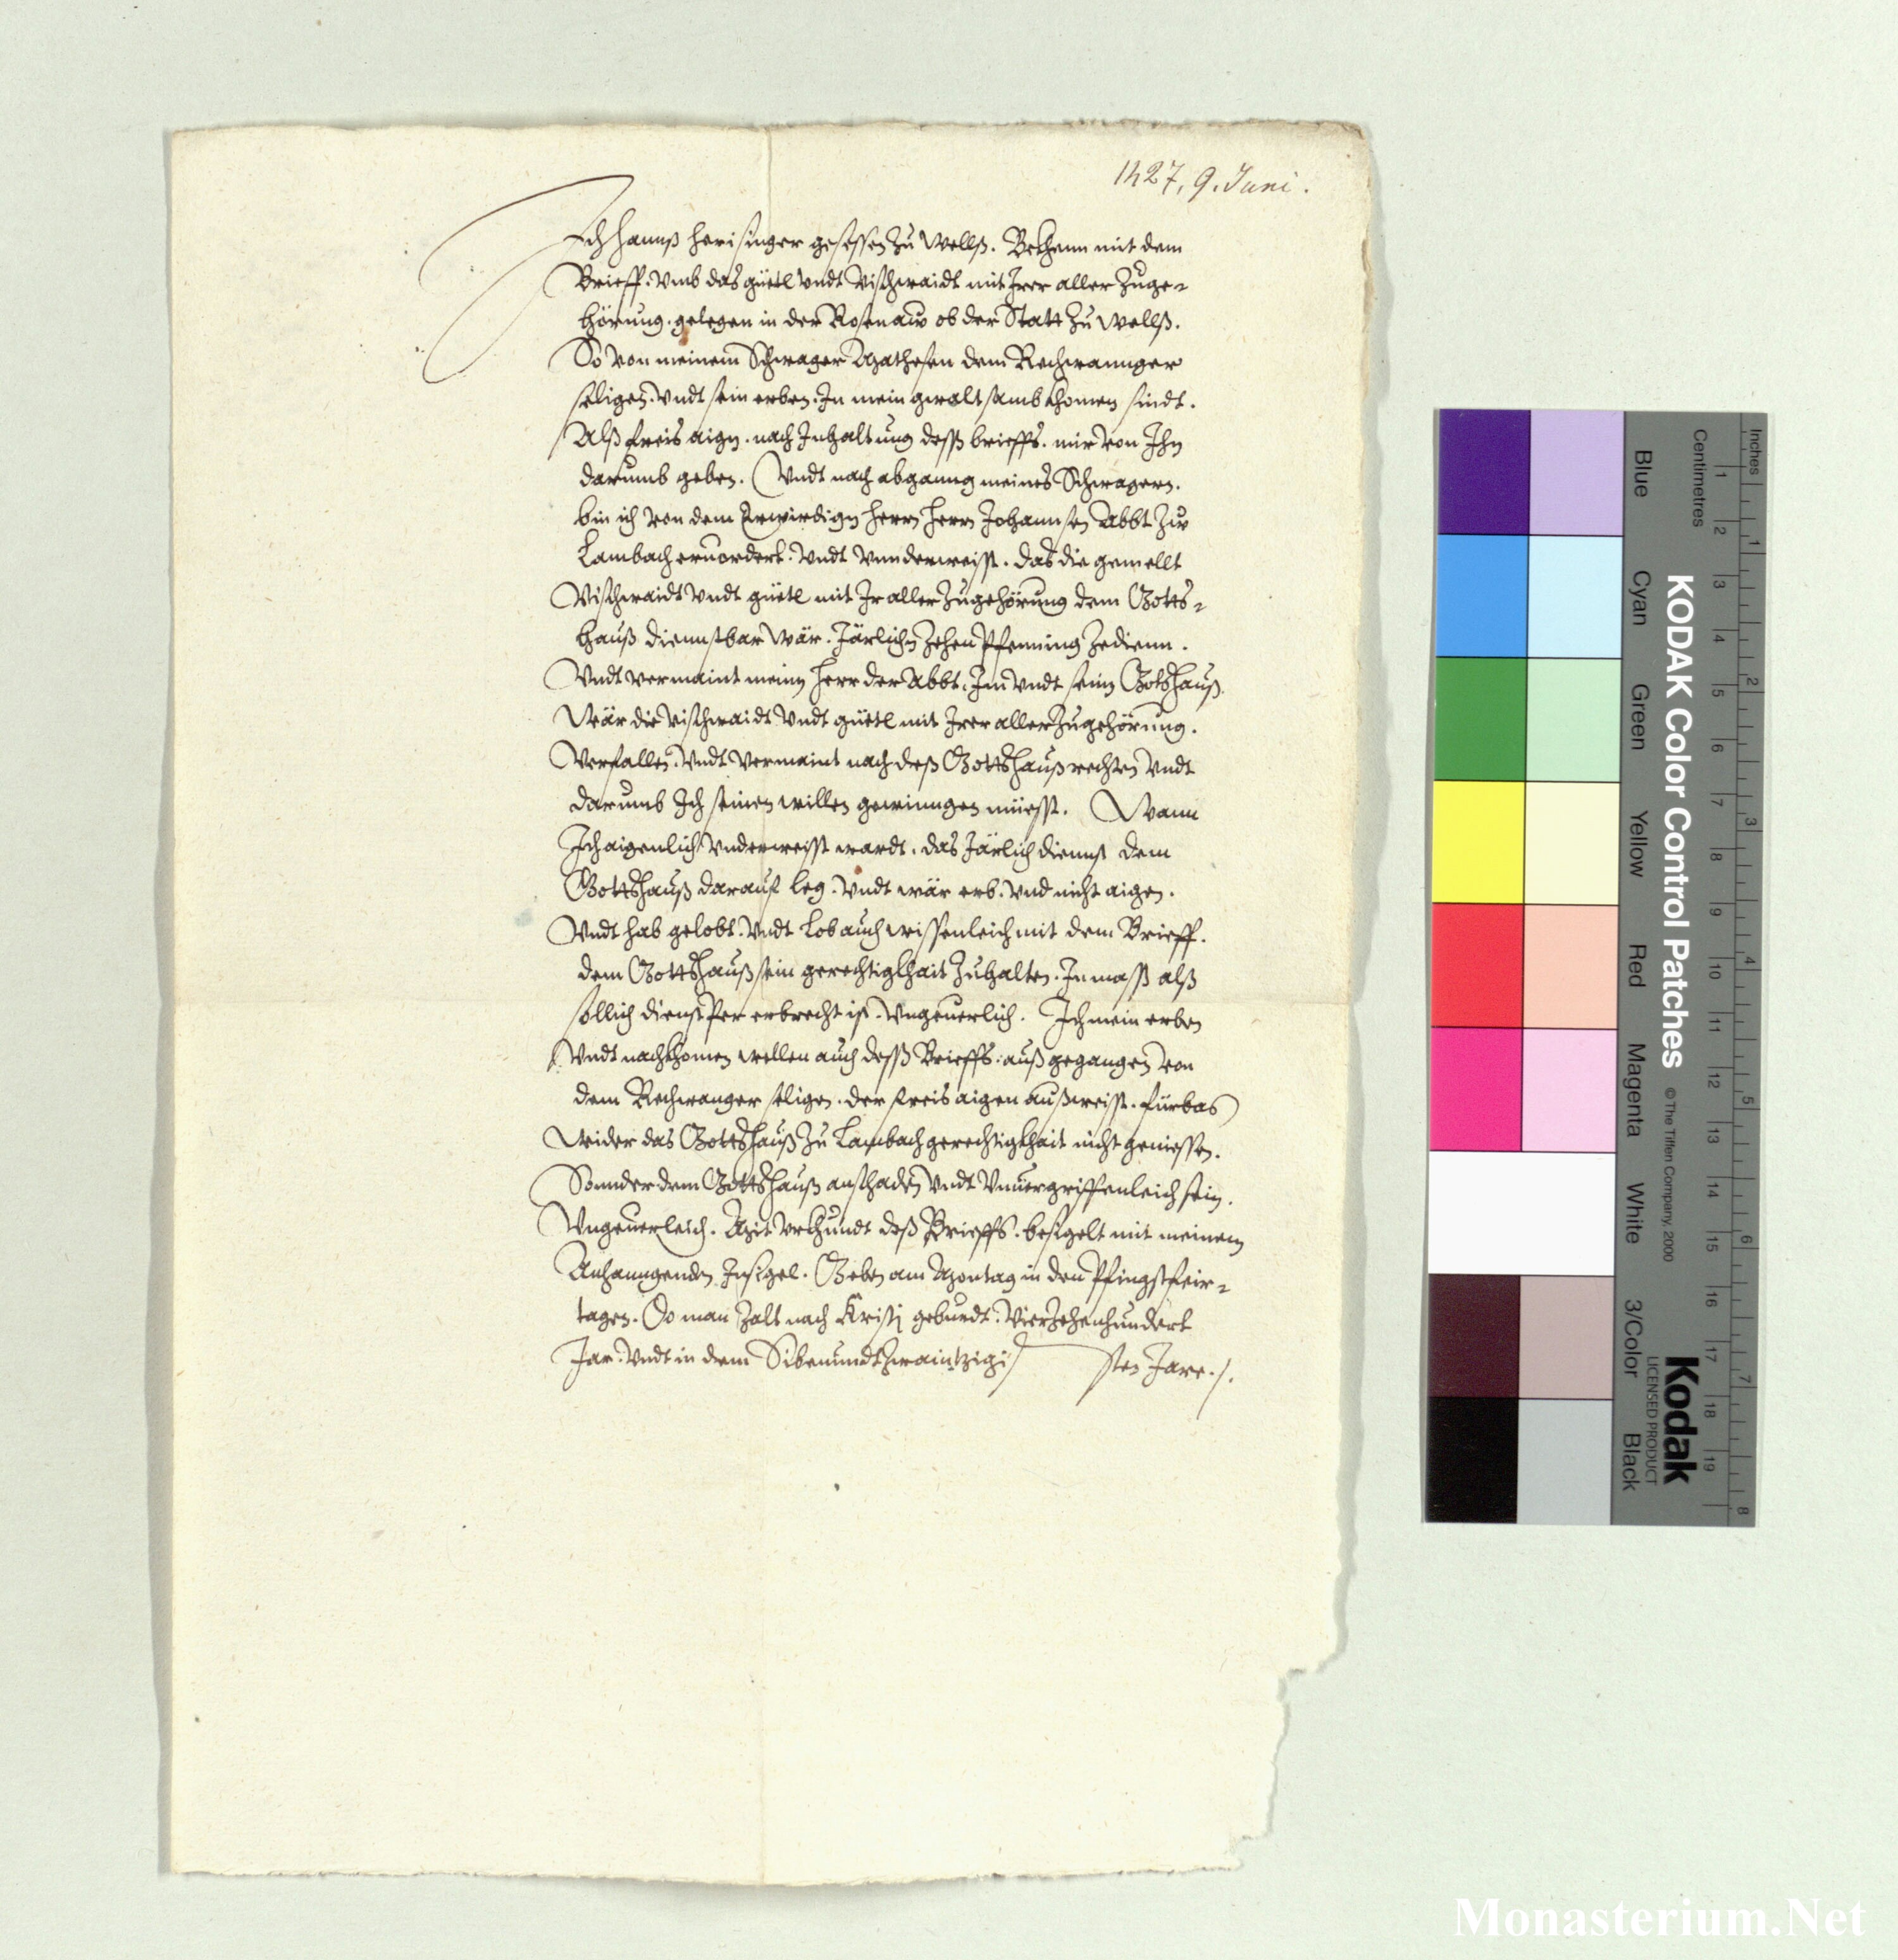 1427, 9. Juni.
Ich Hannß Herisinger gesessen zu Wellß. Bekhenn mit dem
Brieff. Vmb das güetl Vndt Vischwaidt mit Irer aller Zuge-
hörung. gelegen in der Rosenaw ob der Statt zu Wellß.
So von meinem Schwager Mathesen dem Rechwannger
seligen. Vndt sein erben. In mein gwaltsamb khomen sindt.
Alß freis aign. nach Inhaltung desß brieffs. mir von Ihn
darumb geben. Vndt nach abganng meines Schwagern.
bin ich von dem Erwirdign Herrn Herrn Johannsen Abbt zw
Lambach eruordert. Vndt Vnnderweisst. das die gemellt
Vischwaidt Vndt güetl mit Ir aller Zugehörung dem Gotts-
hauß diennstbar Wär. Järlichn zehen Pfenning zedienn.
Vndt vermaint meinn Herr der Abbt. Im Vndt seinn Gottshauß
Wär die Vischwaidt Vndt güetl mit Irer aller Zugehörung.
Verfallen. Vndt Vermaint nach deß Gottshauß rechten Vndt
darumb Ich seinen willen gewinngen müesst. Wann
Ich aigenlich Vnderweisst wardt. das Järlich diennst dem
Gottshauß darauf leg. Vndt wär erb. Vnd nicht aigen.
Vndt hab gelobt. Vndt Lob auch wissenleich mit dem Brieff.
dem Gottshauß sein gerechtigkhait Zuhalten. In mass alß
sollich dienst Per erbrecht ist. Vngeuerlich. Ich mein erben
Vndt nachkhomen wellen auch desß Brieffs. auß gegangen von
dem Rechwanger seligen. der freis aigen außweisst. fürbas
Wider das Gottshauß Zu Lambach gerechtigkhait nicht geniessen.
Sonnder dem Gottshauß anschaden Vndt Vnuergriffenleich sein.
Vngeuerleich. Mit Vrkhundt deß Brieffs. besigelt mit meinem
Anhanngenden Insigel. Geben am Montag in den Pfingstfeir-
tagen. Do man Zalt nach Kristj geburdt. Vierzehenhundert
Jar. Vndt in dem Sibenundtzwaintzigisten Jare./.
Inches
Centimetres
1 2 3 4 5 6 7 8 9 10 11 12 13 14 15 16 17 18 19
1 2 3 4 5 6 7 8
KODAK Color Control Patches
© The Tiffen Company, 2000
Kodak
LICENSED PRODUCT
Blue Cyan Green Yellow Red Magenta White 3/Color Black
Monasterium.Net